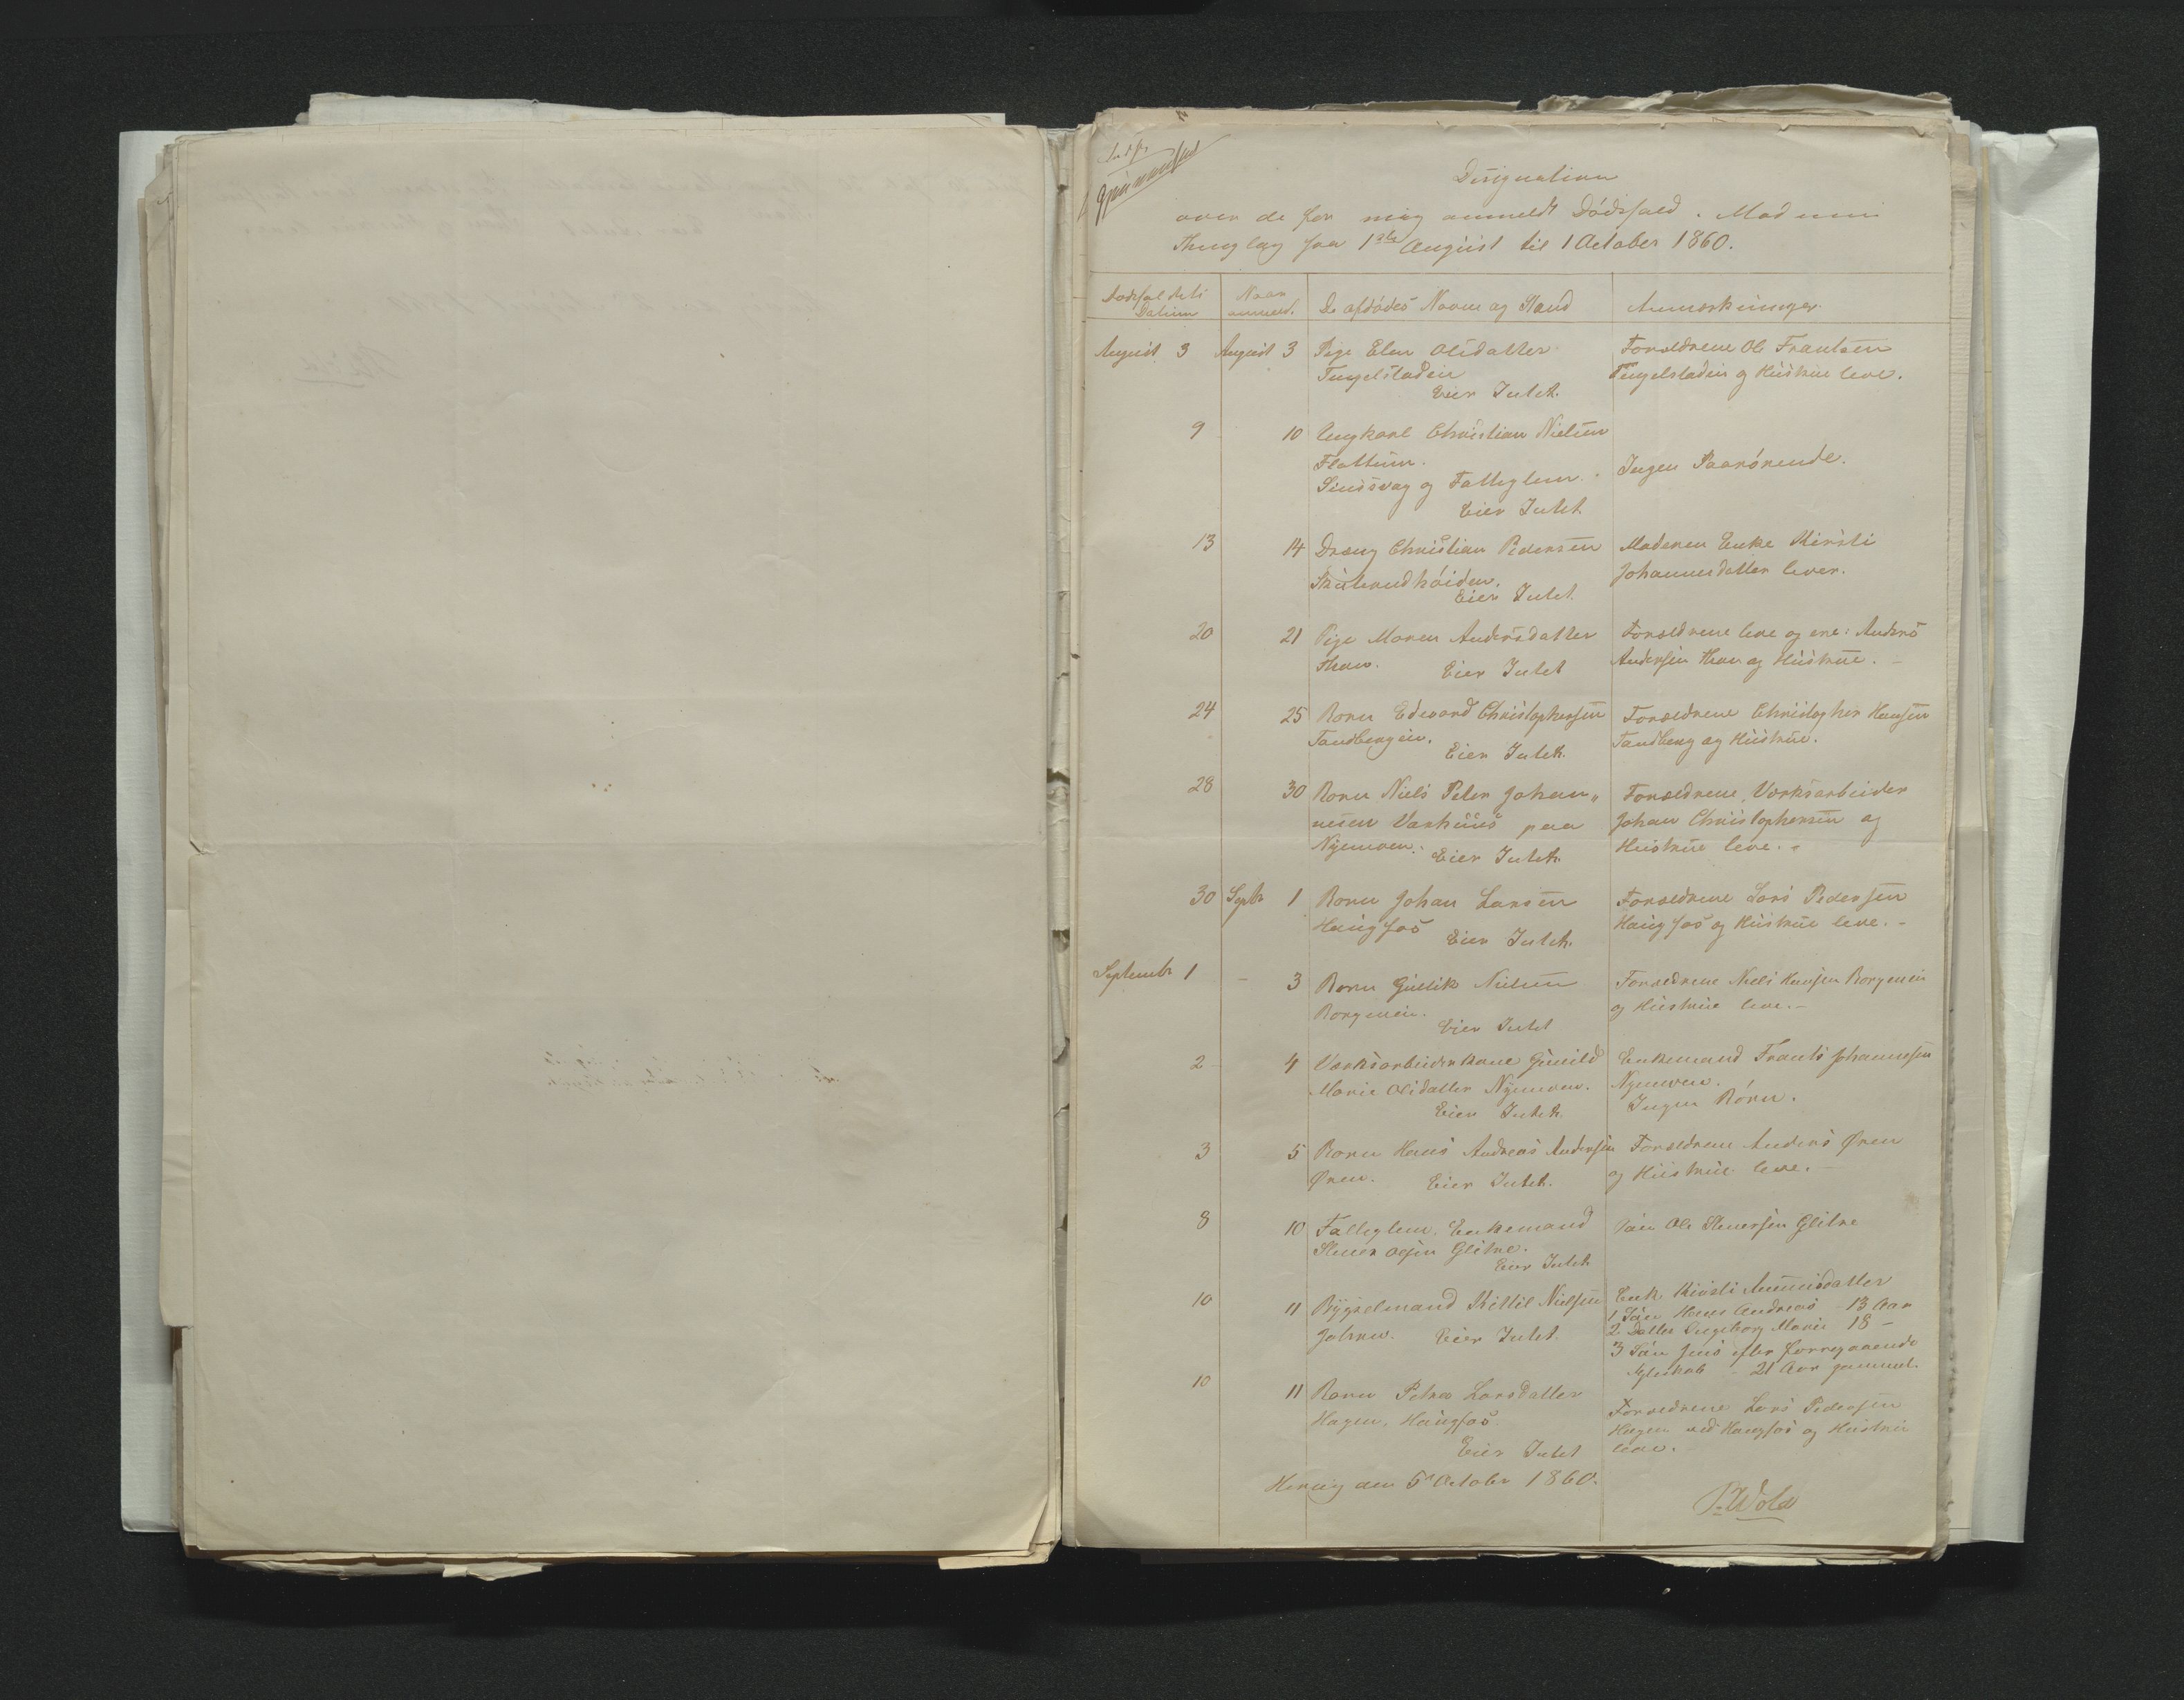 Designation
over de for mig anmeldt Dödsfald i Modums
Thinglag fra 1ste August til 1 October 1860.
Dödsfaldets Datum
Naar anmeldt.
De afdödes Navn og Stand
Anmærkninger
August 3 August 3 Pige Elen Olsdatter Forældrene Ole Frantsen
Tingelstadeie Tingelstadeie og Hustrue leve.
Eier Intet.
9 10 Ungkarl Christian Nielsen
Flattum. Ingen Paarörende.
Sindssvag og Fattiglem.
Eier Intet
13 14 Dreng Christian Pedersen Moderen Enke Kirsti
Skuterudhöiden. Johannesdatter lever.
Eier Intet
20 21 Pige Maren Andersdatter Forældrene leve og ere: Anders
Thon. Eier Intet Andersen Thon og Hustrue.
24 25 Barn Edevard Christophersen Forældrene Christopher Hansen
Tandbergeie. Eier Intet. Tandberg og Hustrue.
28 30 Barn Niels Peter Johan„ Forældrene, Værksarbeider
nesen Værkuus paa Johan Christophersen og
Nymoen. Eier Intet. Hustrue leve.
30 Septr 1 Barn Johan Larsen Forældrene Lars Pedersen
Haugfos Eier Intet. Haugfos og Hustrue leve. -
Septembr 1 - 3 Barn Gullik Nielsen Forældrene Niels Hansen Borgeneie
Borgeneie. Eier Intet og Hustrue leve. -
2 4 Værksarbeiderkone Gunild Enkemand Frants Johannesen
Marie Olsdatter Nymoen. Nymoen.
Eier Intet. Ingen Börn.
3 5 Barn Hans Andreas Andersen Forældrene Anders Øren
Øren. Eier Intet. og Hustrue leve. -
8 10 Fattiglem, Enkemand Sön Ole Steensen Glitre
Steen Glitre.
Eier Intet
10 11 Bygselmand Kittil Nielsen Enke Kirsti
Eier Intet. 1 Sön Hans Andreas - 13 Aar
2 Datter Ingeborg Marie 18 -
3 Sön Jens efter foregaaende
Ægteskab - 21 Aar gammel.
10 11 Barn Petra Larsdatter Forældrene Lars Pedersen
Hagen, Haugfos. Hagen ved Haugfos og Hustrue
Eier Intet leve.
den 5 October 1860.
P. Wold